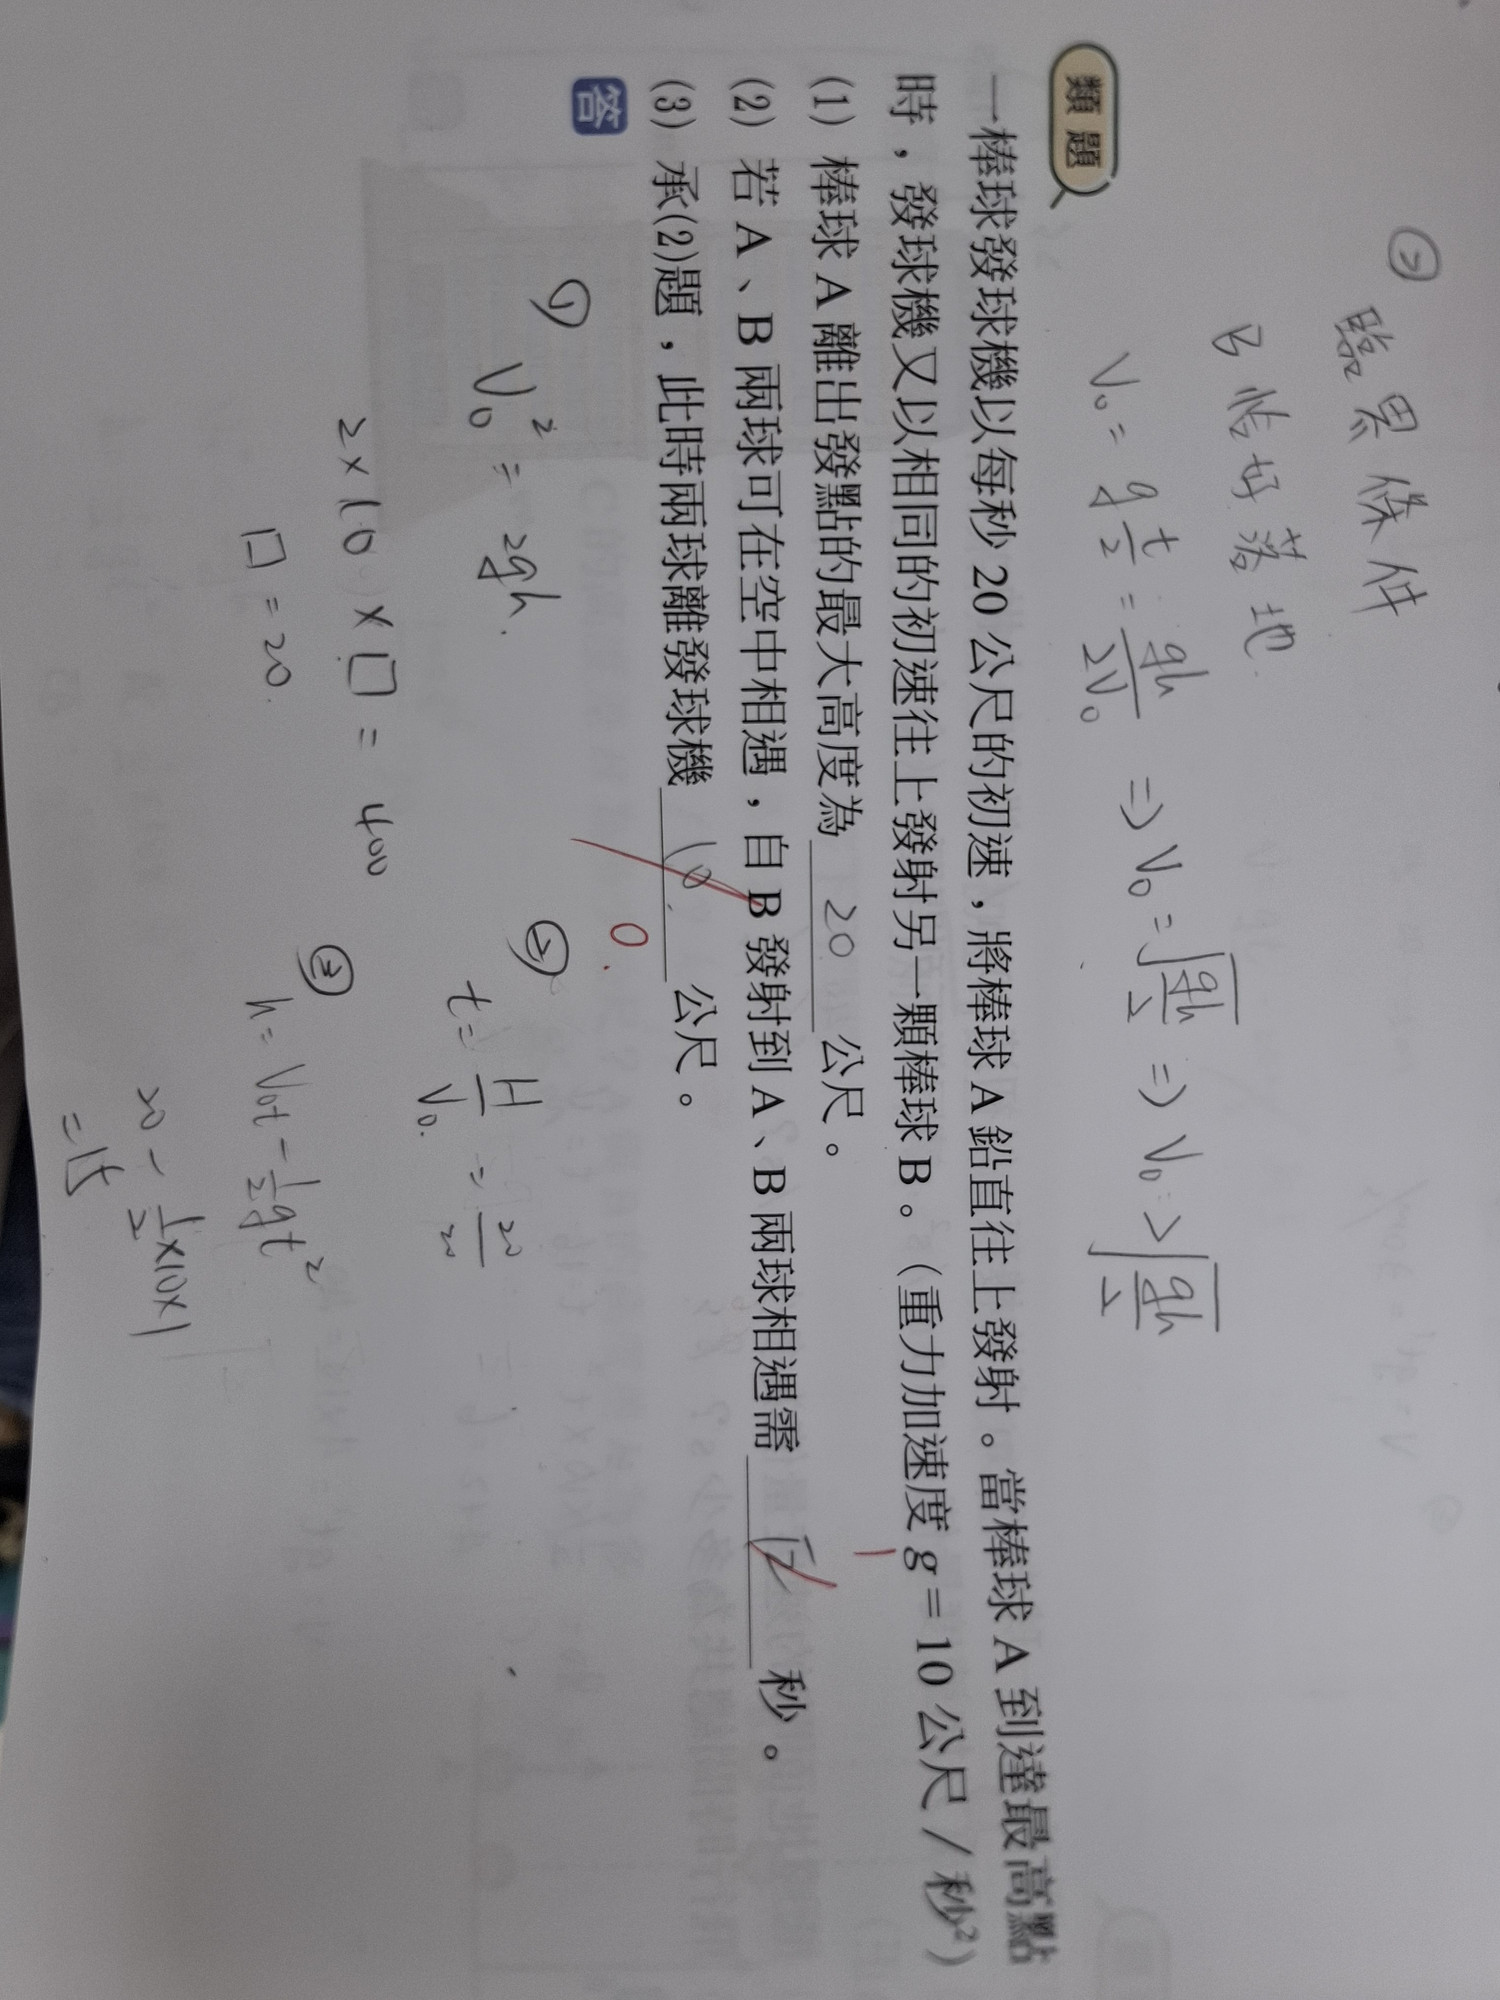 ② 臨界條件
B 恰好落地
V₀ = g t/2 = gh/2V₀ ⇒ V₀ = √(gh/2) ⇒ V₀ > √(gh/2)
類題
一棒球發球機以每秒 20 公尺的初速，將棒球 A 鉛直往上發射。當棒球 A 到達最高點
時，發球機又以相同的初速往上發射另一顆棒球 B。（重力加速度 g＝10 公尺／秒²）
(1) 棒球 A 離出發點的最大高度為 20 公尺。
1
(2) 若 A、B 兩球可在空中相遇，自 B 發射到 A、B 兩球相遇需 √2 秒。
(3) 承(2)題，此時兩球離發球機 10 公尺。
0.
答
① V₀² = 2gh.
2×10×□ = 400
□ = 20
② t = H/V₀. = 20/20
③ h = V₀t - 1/2 gt²
20 - 1/2 ×10×1
= 15